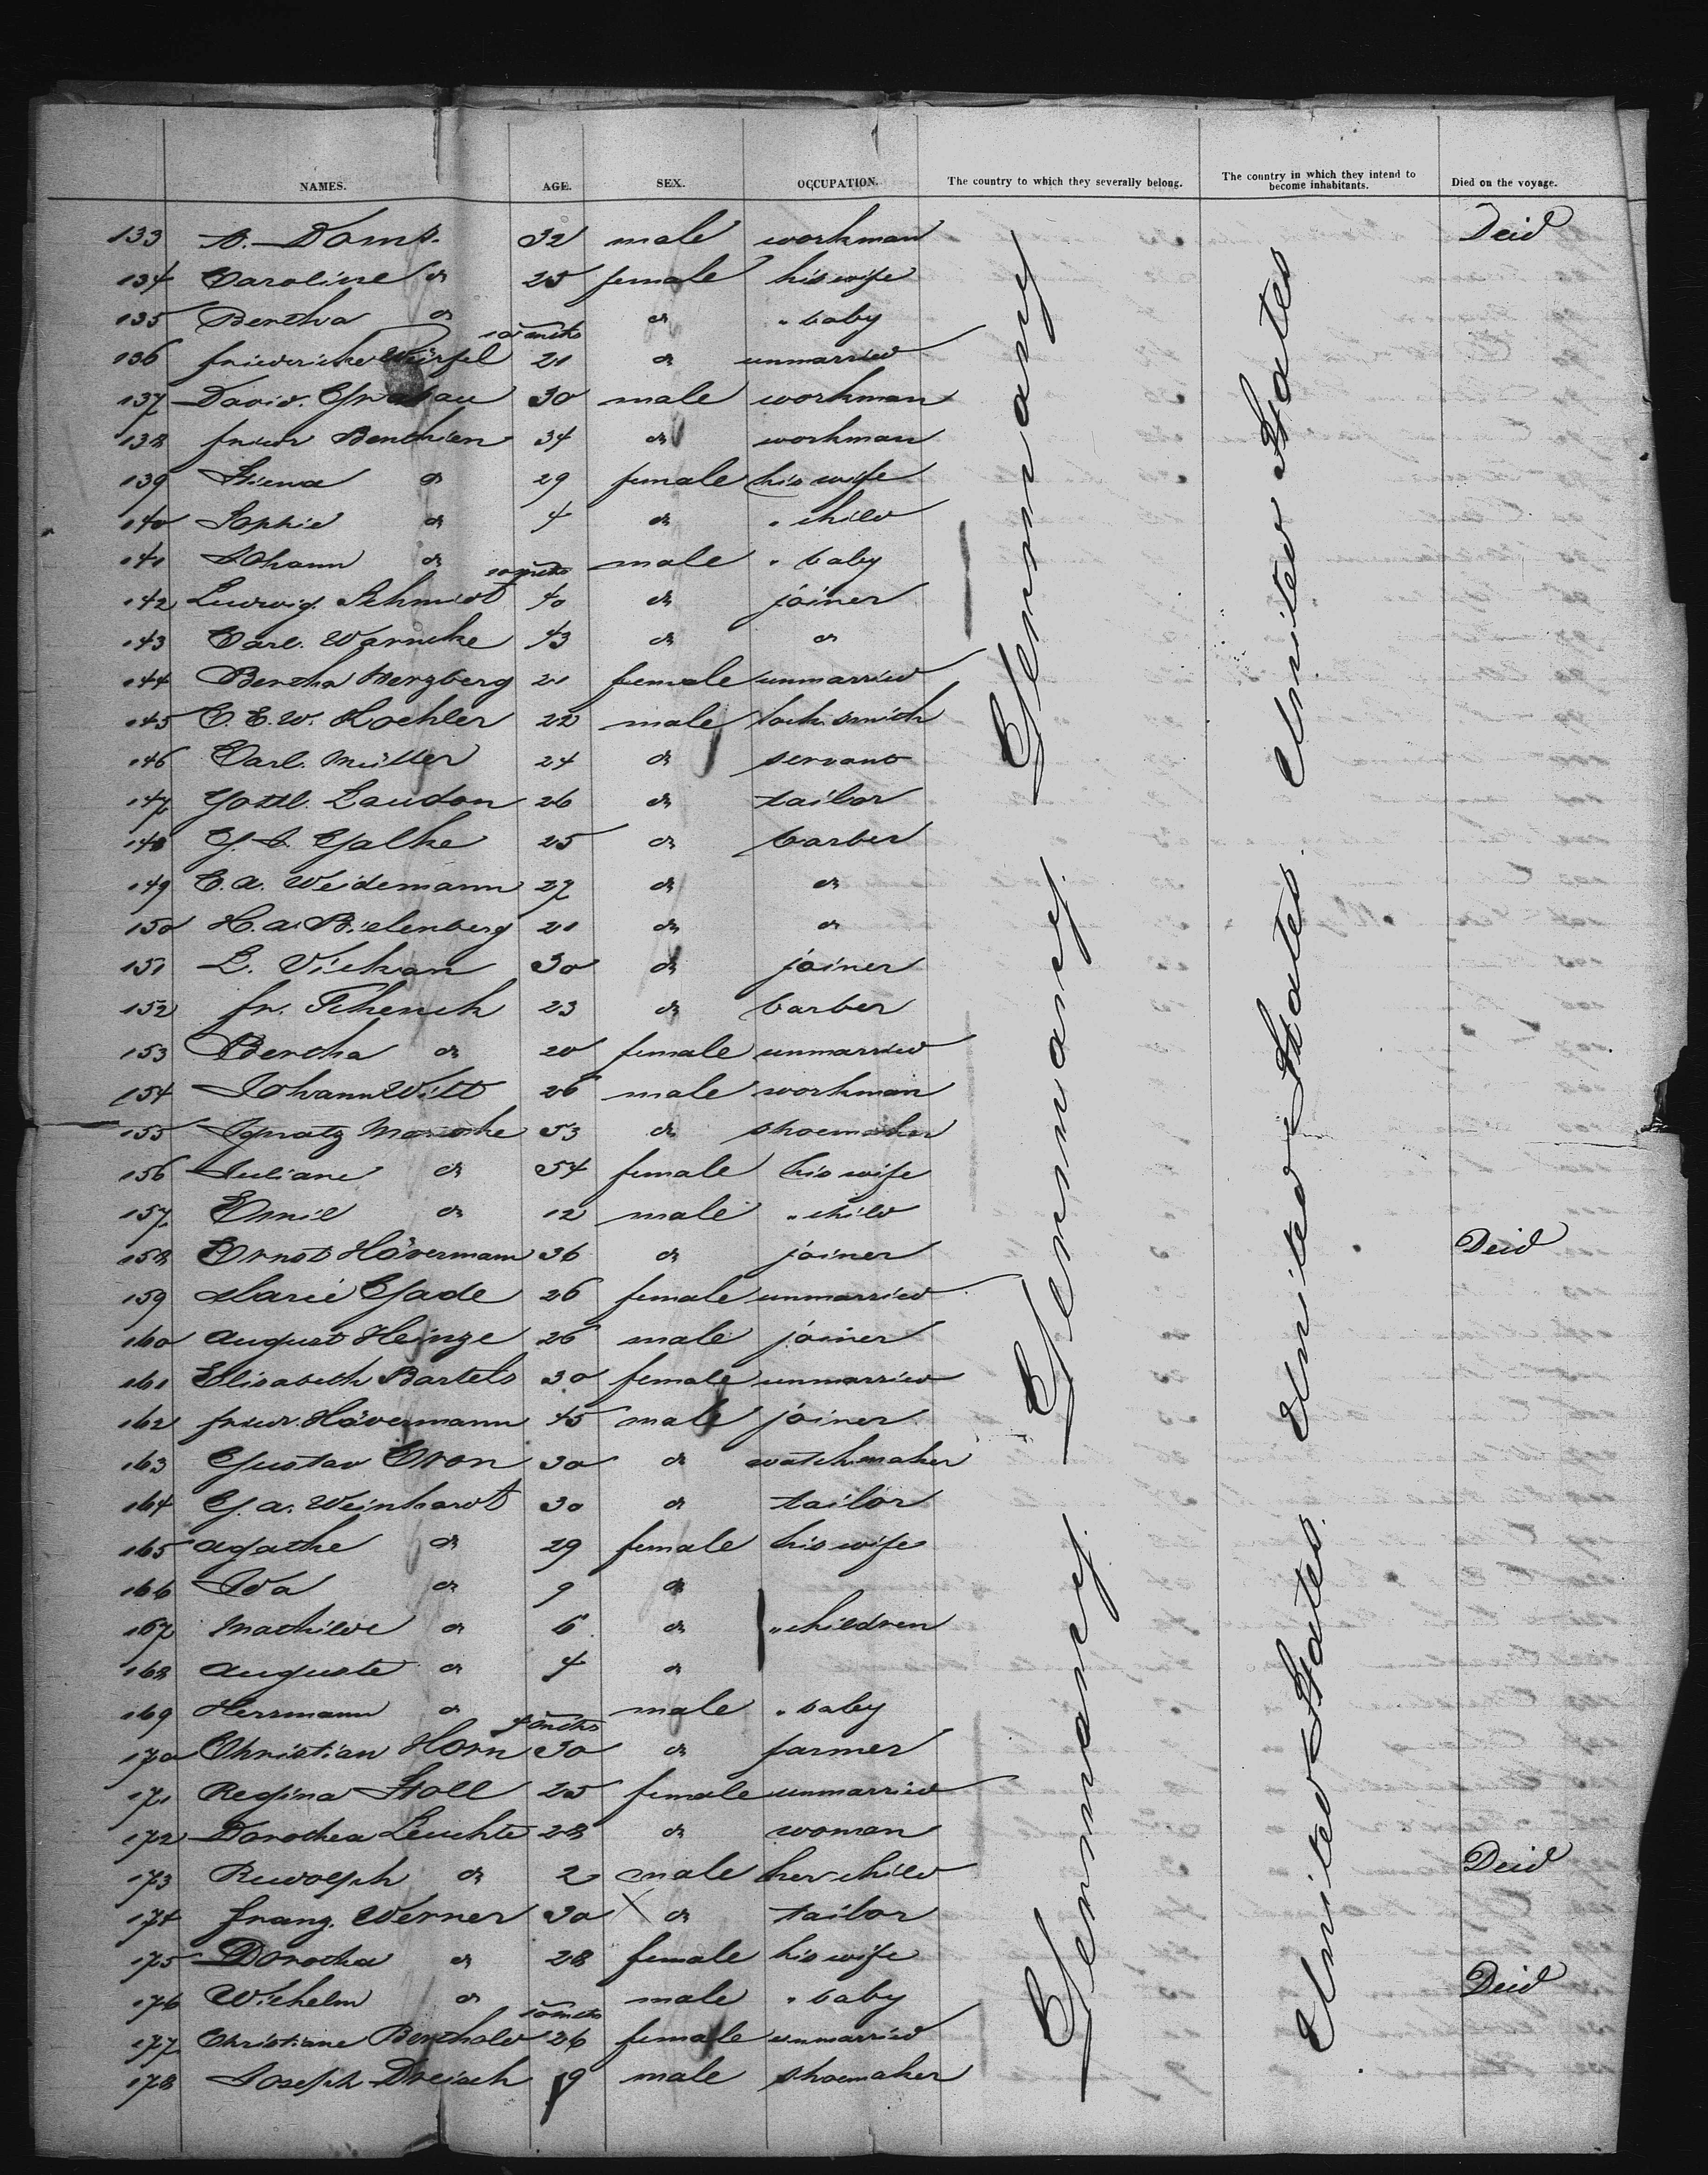 NAMES. AGE. SEX. OCCUPATION. The country to which they severally belong. The country in which they intend to become inhabitants. Died on the voyage.
133 A. Doms. 32 male workman Deid
134 Caroline do 25 female his wife
135 Bertha do 10 mths do " baby
136 Friedericke Würfel 21 do unmarried
137 David. Grabau 30 male workman
138 Friedr Benthien 34 do workman
139 Stiena do 29 female his wife
140 Sophie do 4 do " child
141 Johann do 10 mths male " baby
142 Ludwig. Schmidt 40 do joiner
143 Carl. Warncke 43 do do
144 Bertha Herzberg 21 female unmarried
145 C. E. W. Koehler 22 male locksmith
146 Carl. Müller 24 do servant
147 Gottl. Laudon 26 do tailor
148 G. J. Galke 25 do barber
149 C. A. Weidemann 27 do do
150 H. A. Bielenberg 21 do do
151 L. Viekan 30 do joiner
152 Fr. Schenck 23 do barber
153 Bertha do 20 female unmarried
154 Johann Witt 26 male workman
155 Ignatz 53 do shoemaker
156 Juliane do 54 female his wife
157 Emil do 12 male " child
158 Ernst Hövermann 36 do joiner Deid
159 Marie Gade 26 female unmarried
160 August Heinze 26 male joiner
161 Elisabeth Bartels 30 female unmarried
162 Friedr. Hövermann 45 male joiner
163 Gustav Eron 30 do watchmaker
164 G. A. Weinhardt 30 do tailor
165 Agathe do 29 female his wife
166 Ida do 9 do
167 Mathilde do 6 do " children
168 Auguste do 4 do
169 Herrmann do 4 mths male " baby
170 Christian Horn 30 do farmer
171 Regina Stoll 25 female unmarried
172 Dorothea Leuchte 28 do woman
173 Rudolph do 2 male her child Deid
174 Franz. Werner 30 do tailor
175 Dorothea do 28 female his wife
176 Wilhelm do 10 mths male " baby Deid
177 Christiane Berthold 26 female unmarried
178 Joseph Dreisch 19 male shoemaker
Germany
Germany.
Germany.
United States
United States.
United States.